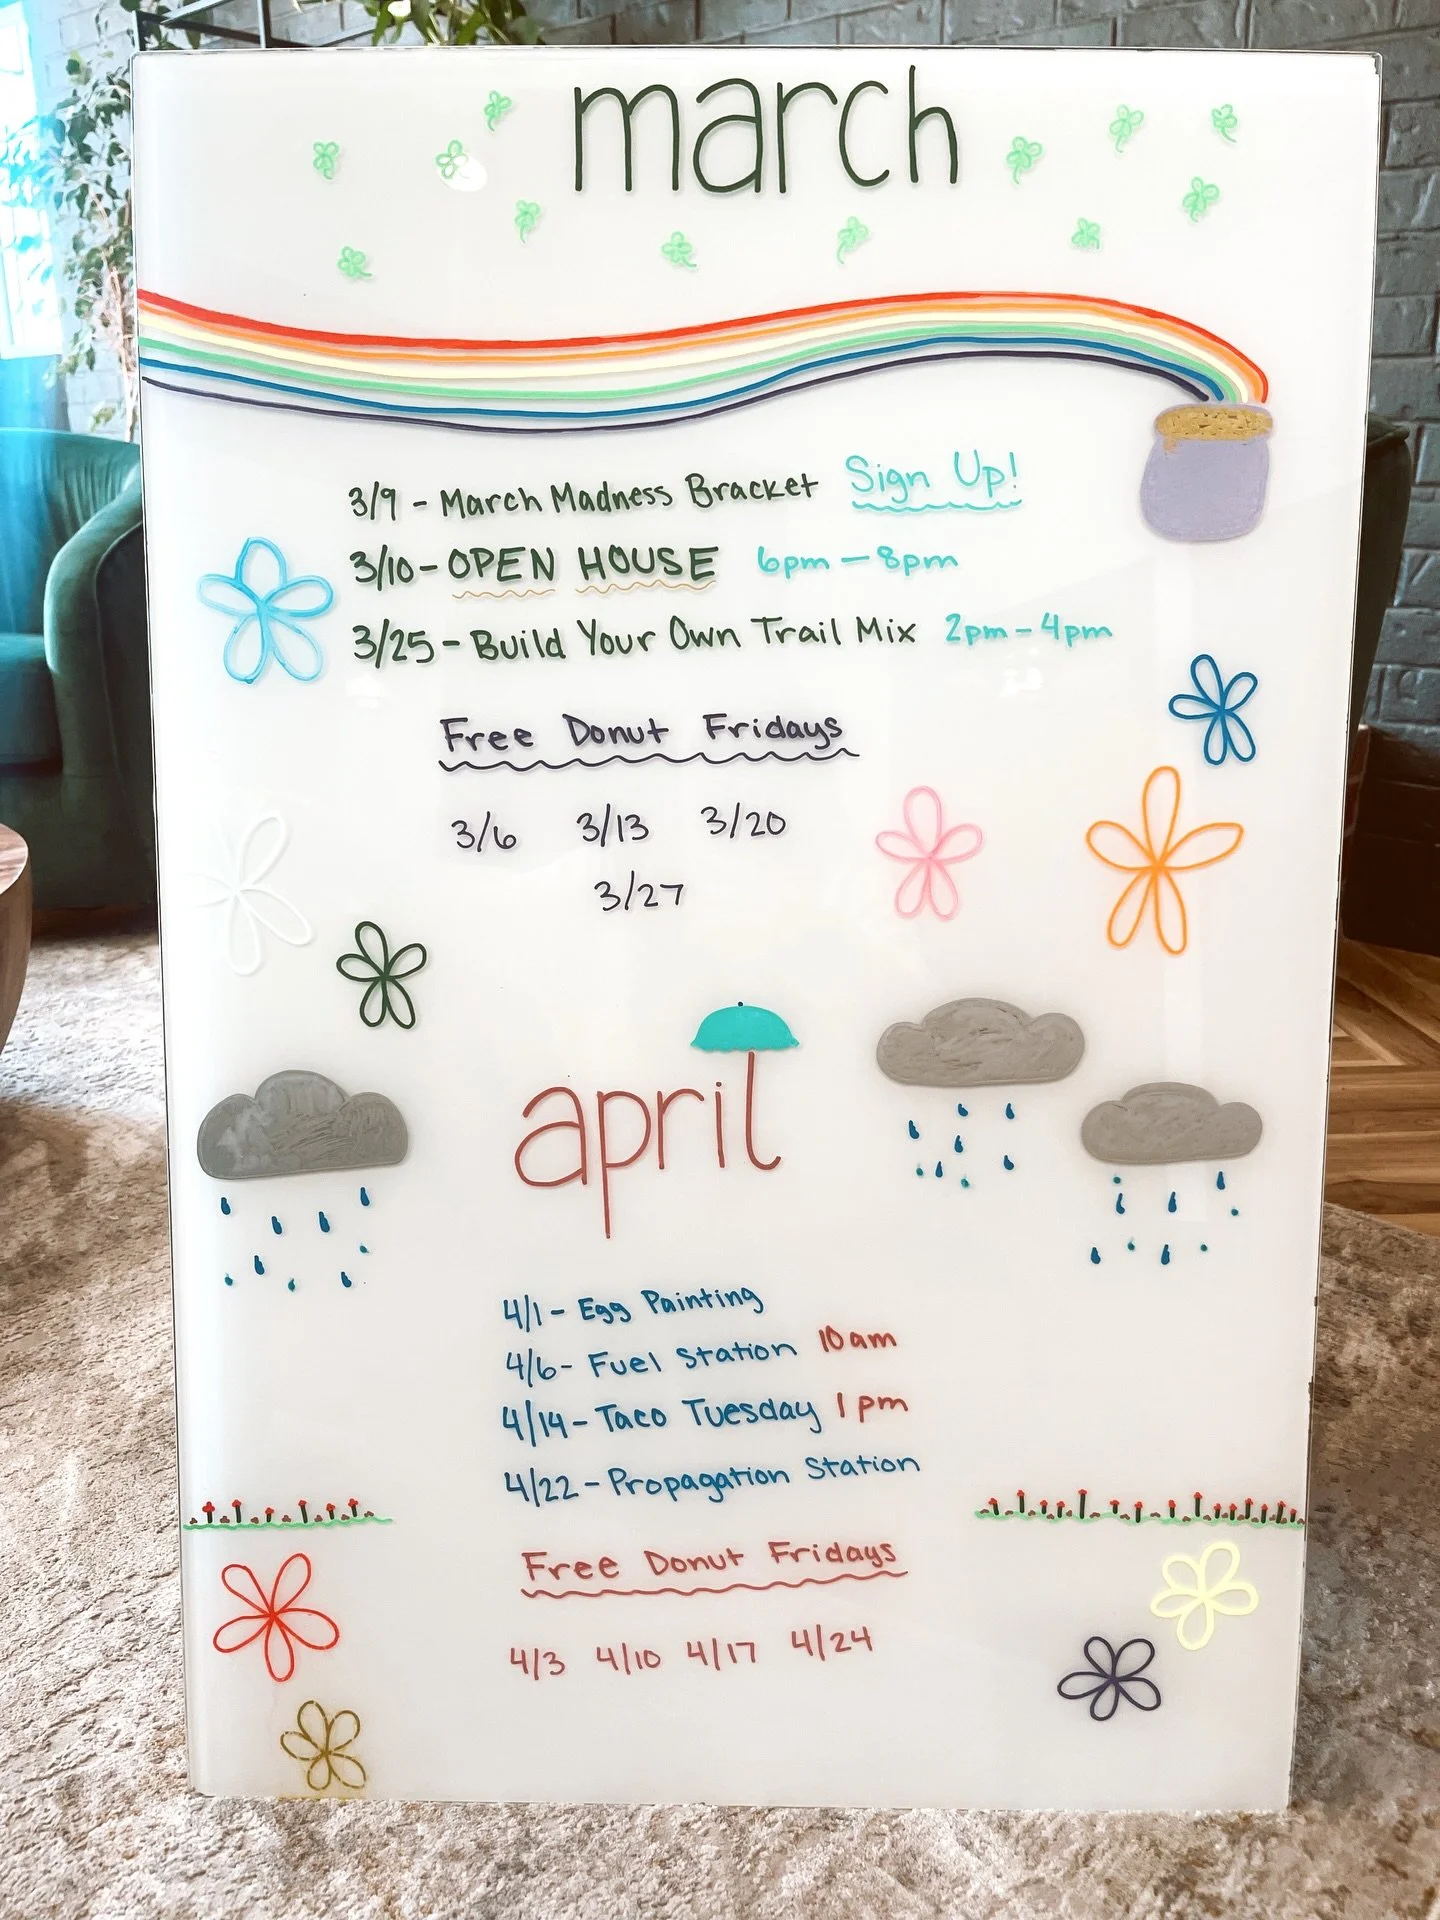 march
3/9 - March Madness Bracket Sign Up!
3/10 - OPEN HOUSE 6pm - 8pm
3/25 - Build Your Own Trail Mix 2pm - 4pm
Free Donut Fridays
3/6 3/13 3/20
3/27
april
4/1 - Egg Painting
4/6 - Fuel Station 10am
4/14 - Taco Tuesday 1pm
4/22 - Propagation Station
Free Donut Fridays
4/3 4/10 4/17 4/24